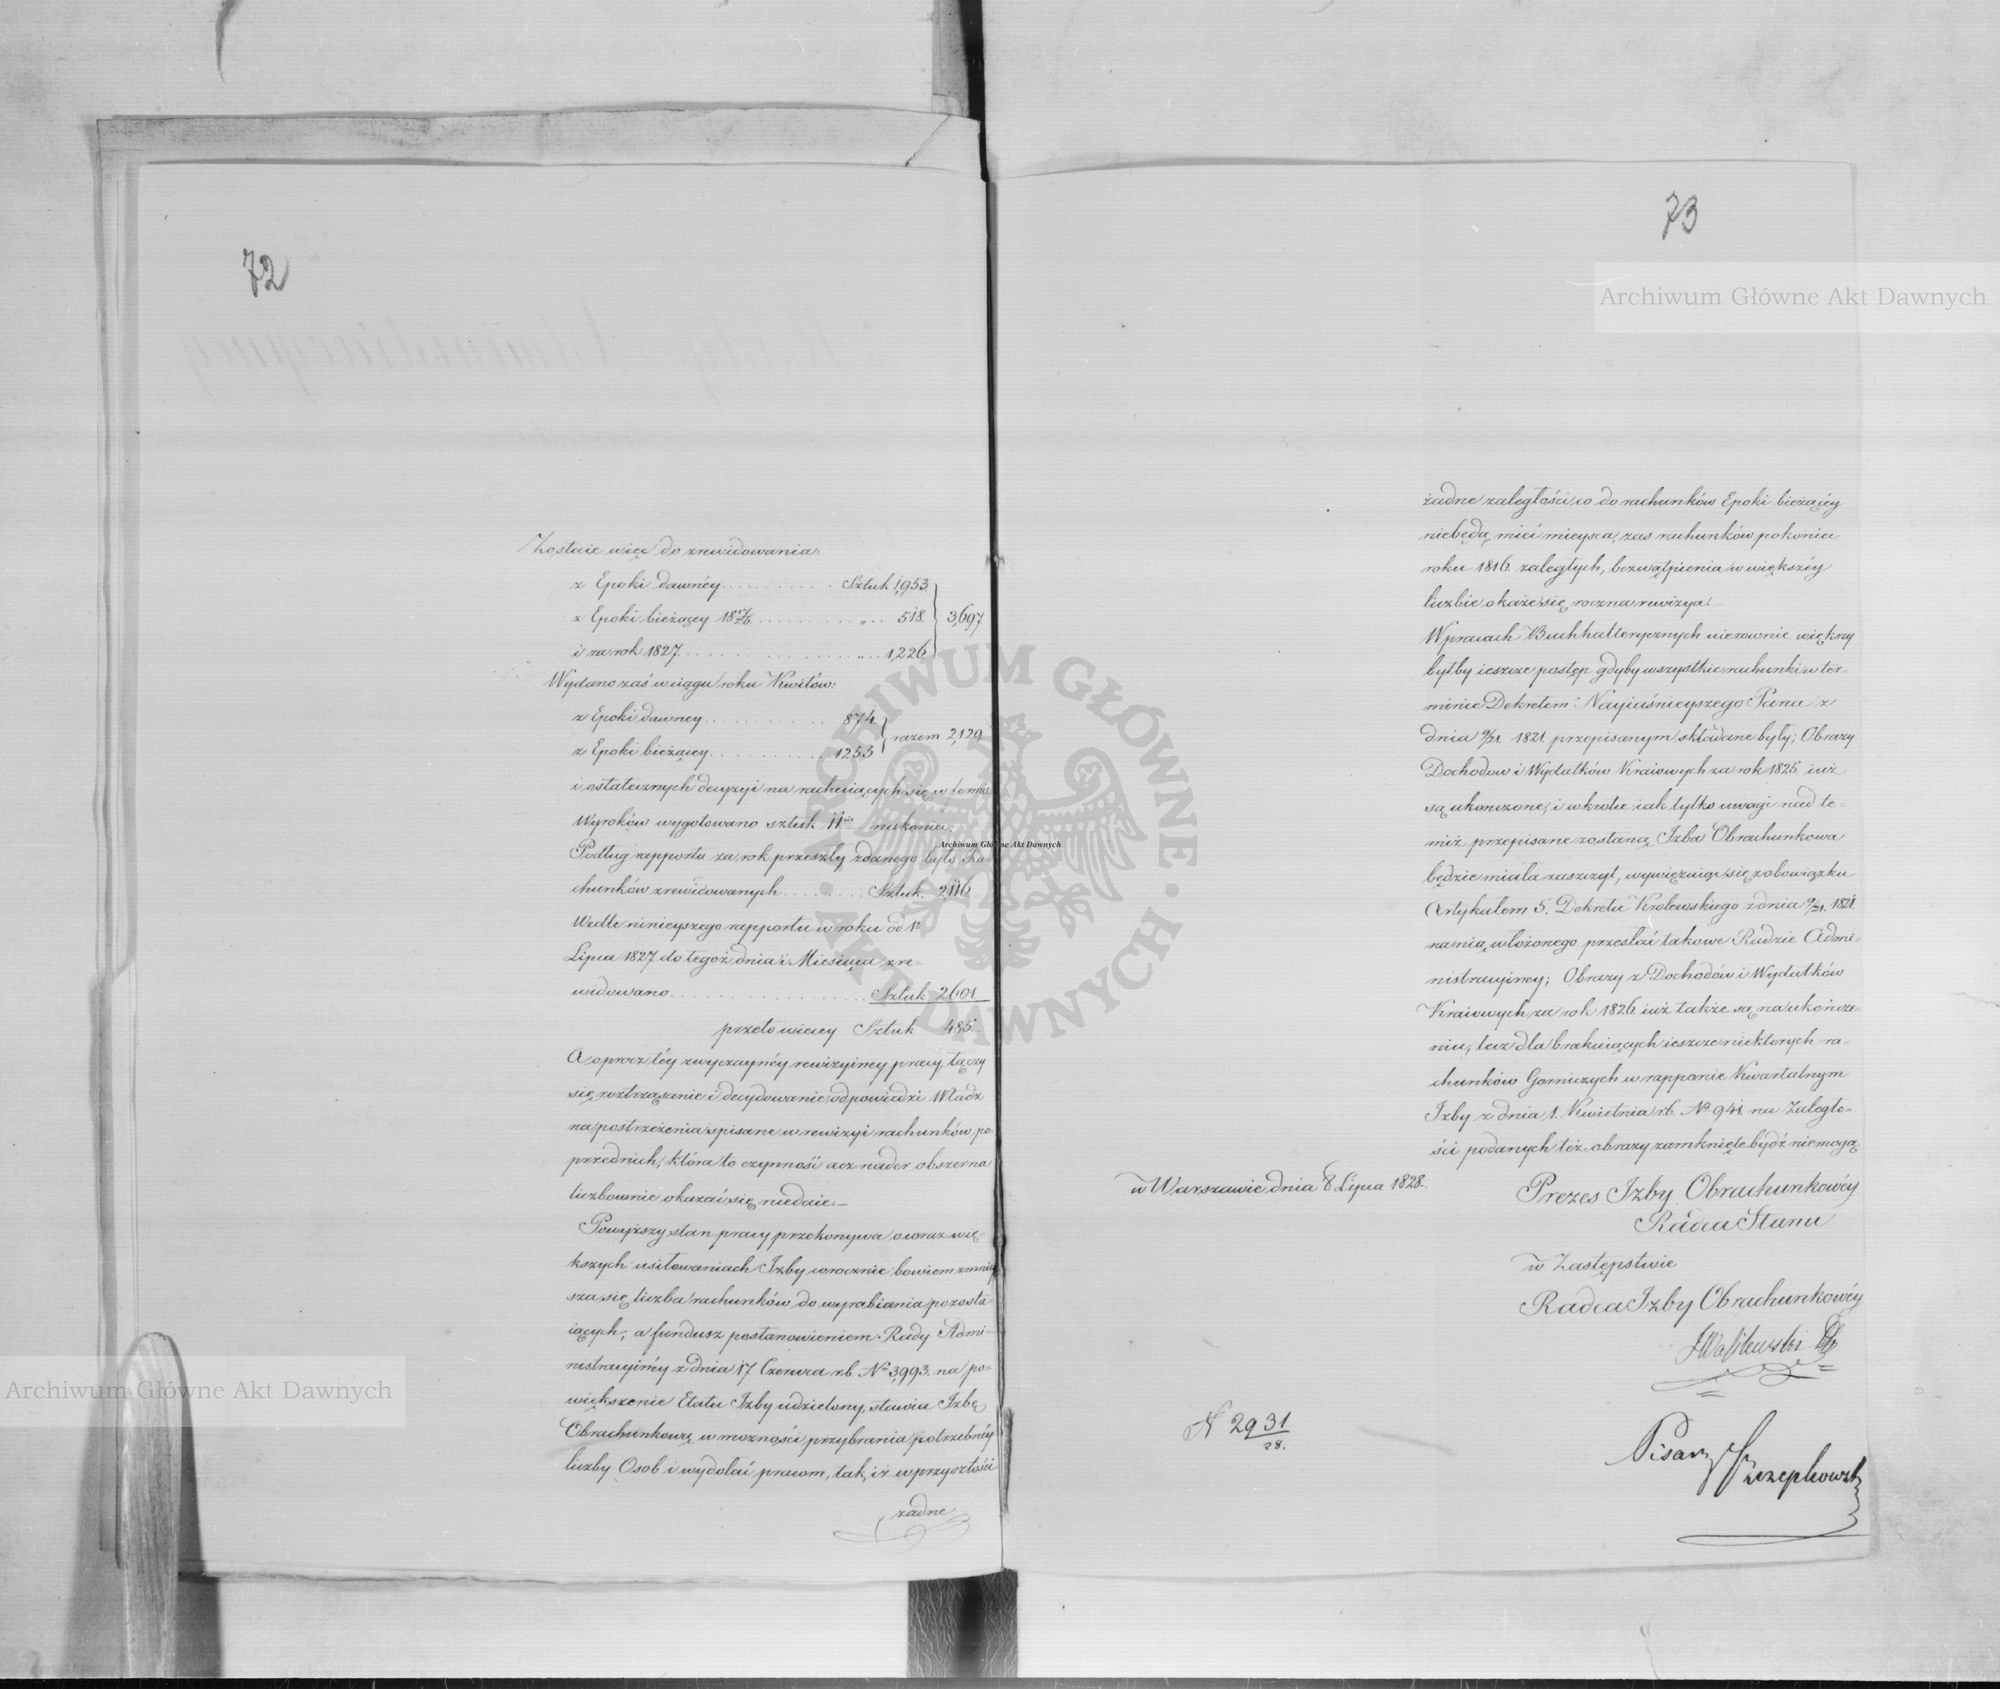 72
Zostaie więc do zrewidowania:
z Epoki dawnéy . . . . . . . . . . . Sztuk 1,953.
z Epoki bieżącey 18 17/26 . . . . . . . . . . „ . . 518. } 3,697
i za rok 1827. . . . . . . . . . . . . . . . . „ . . 1,226
Wydano zaś w ciągu roku Kwitów:
z Epoki dawney . . . . . . . . . . . 874.
z Epoki bieżącey . . . . . . . . . . . 1255 } razem 2,129
i ostatecznych decyzyi na rachuiących się w formie
Wyroków wygotowano sztuk 11 nakoniec.
Podług rapportu za rok przeszły zdanego było Ra-
chunków zrewidowanych . . . . . . . . Sztuk 2,116
Wedle ninieyszego rapportu w roku od 1
Lipca 1827 do tegoż dnia i Miesiąca zre-
widowano . . . . . . . . . . . . . . . . . Sztuk 2601
przeto więcey Sztuk 485
A oprocz téy zwyczaynéy rewizyiney pracy, łączy
się roztrząsanie i decydowanie odpowiedzi Władz
na postrzeżenia spisane w rewizyi rachunków po-
przednich, która to czynność acz nader obszerna
liczbownie okazać się niedaie. —
Powyższy stan pracy przekonywa o coraz wię-
kszych usiłowaniach Izby corocznie bowiem zmniey
sza się liczba rachunków do wyrobienia pozosta-
iących, a fundusz postanowieniem Rady Admi-
nistracyinéy z dnia 17 Czerwca r.b. No 3,993. na po-
większenie Etatu Izby udzielony, stawia Izbę
Obrachunkową w możności przybrania potrzebnéy
liczby Osob i wydołać pracom, tak, iż w przyszłości
żadne
73
żadne zaległości co do rachunków Epoki bieżącéy
niebędą mieć mieysca, zas rachunków po koniec
roku 1816. zaległych, bezwątpienia w większéy
liczbie okaże się roczna rewizya. —
W pracach Buchhalterycznych nierownie większy
byłby ieszcze postęp gdyby wszystkie rachunki w ter-
minie Dekretem Nayiaśnieyszego Pana z
dnia 9/21. 1821. przepisanym składane były; Obrazy
Dochodow i Wydatków Kraiowych za rok 1825. iuż
są ukonczone, i w krotce iak tylko uwagi nad te-
miż przepisane zostaną, Izba Obrachunkowa
będzie miała zaszczyt, wywięzuiąc się z obowiązku
Artykułem 5. Dekretu Krolewskiego z dnia 9/21. 1821.
na nią włożonego przesłać takowe Radzie Admi-
nistracyiney; Obrazy z Dochodów i Wydatków
Kraiowych za rok 1826. iuż także są na ukończe-
niu, lecz dla brakuiących ieszcze niektorych ra-
chunków Gorniczych w rapporcie Kwartalnym
Izby z dnia 1. Kwietnia r.b. No 941. na Zaległo-
ści podanych też obrazy zamknięte bydź niemogą.
w Warszawie dnia 8 Lipca 1828.
Prezes Izby Obrachunkowéy
Radca Stanu
w Zastępstwie
Radca Izby Obrachunkowéy
JWasilewski
N 2931/28.
Pisarz Szczepkowski
Archiwum Główne Akt Dawnych
Archiwum Główne Akt Dawnych
Archiwum Główne Akt Dawnych
ARCHIWUM GŁÓWNE • AKT DAWNYCH •